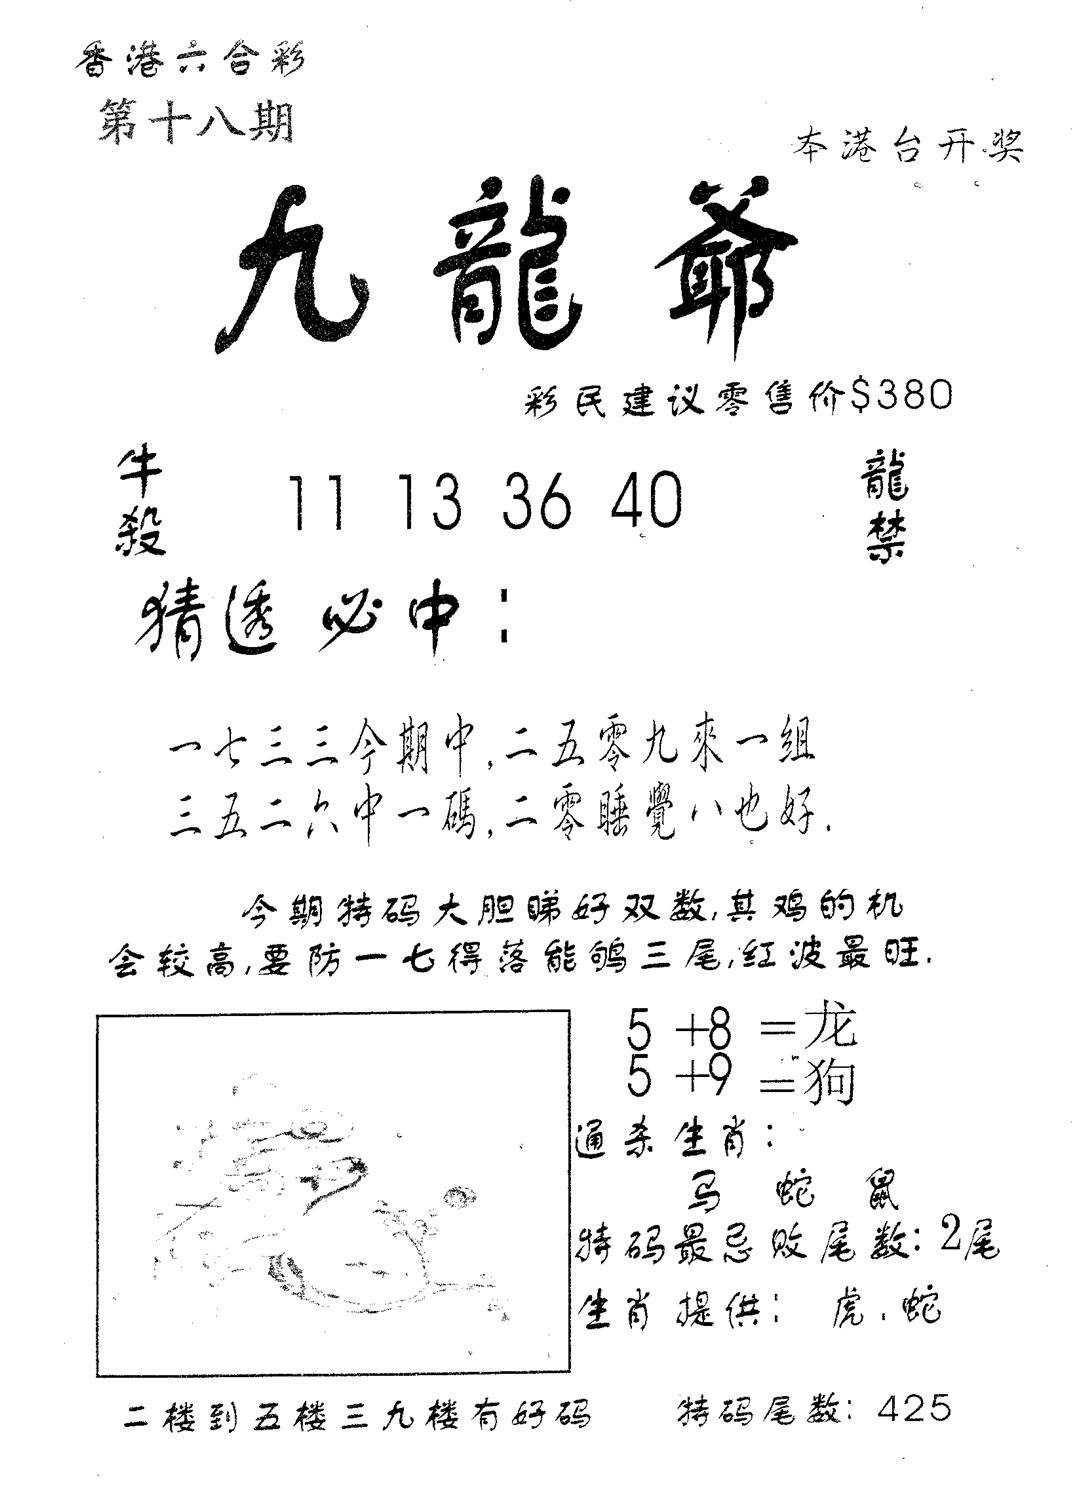 香港六合彩
第十八期
本港台开奖
九龍爺
彩民建议零售价$380
牛殺
11 13 36 40
龍禁
猜透必中：
一七三三今期中,二五零九來一组
三五二六中一碼,二零睡覺八也好.
今期特码大胆睇好双数,其鸡的机
会较高,要防一七得落能鸲三尾,红波最旺.
5+8=龙
5+9=狗
通杀生肖：
马 蛇 鼠
特码最忌败尾数：2尾
生肖提供：虎.蛇
二楼到五楼三九楼有好码
特码尾数：425